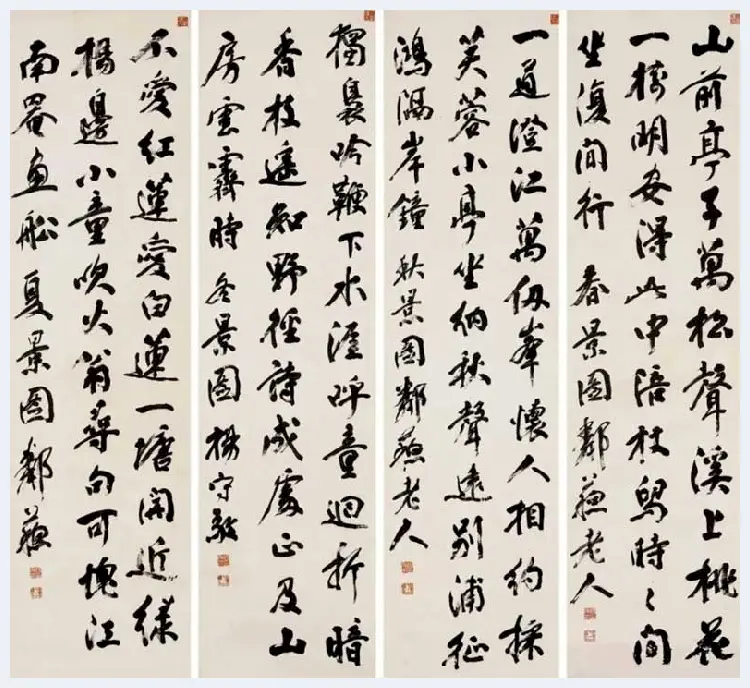 山前亭子萬松聲溪上桃花
一樹明安得此中陪杖舄時〻閒
坐復閒行 春景圖鄰蘇老人
一道澄江萬仞峯懷人相約採
芙蓉小亭坐納秋聲遠別浦征
鴻隔岸鐘 秋景圖鄰蘇老人
獨裊吟鞭下水涯呼童迴折暗
香枝遥知野徑詩成處正及山
房雲霽時 冬景圖楊守敬
不愛紅蓮愛白蓮一塘開近綠
楊邊小童吹火翁尋句可愧江
南罨画船夏景圖鄰蘇